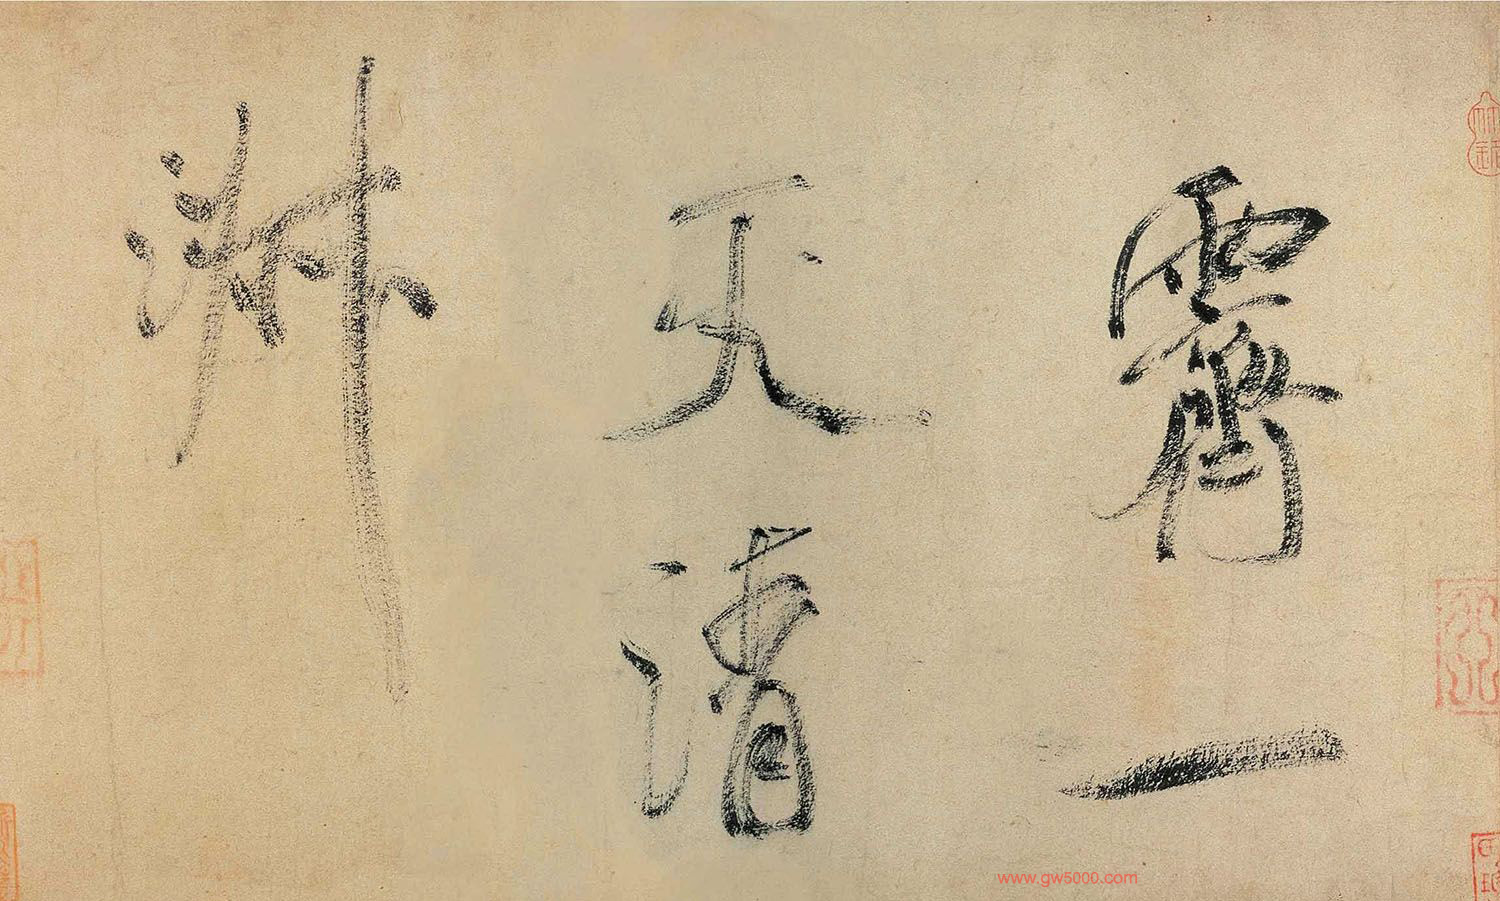 霽一
天清
淑
www.gw5000.com